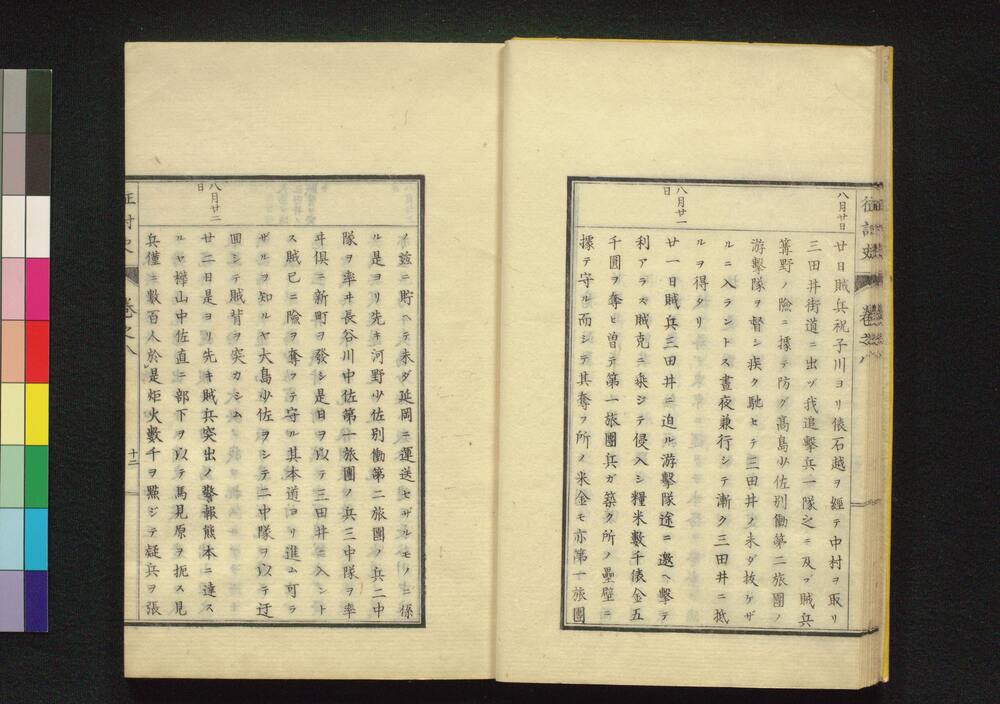 八月廿日
廿日賊兵祝子川ヨリ俵石越ヲ經テ中村ヲ取リ
三田井街道ニ出ヅ我追擊兵一隊之ニ及ブ賊兵
篝野ノ險ニ據テ防グ高島少佐別働第二旅團ノ
游擊隊ヲ督シ疾ク馳セテ三田井ノ未ダ拔ケザ
ルニ入ラントス晝夜兼行シテ漸ク三田井ニ抵
ルヲ得タリ
八月廿一日
廿一日賊兵三田井ニ迫ル游擊隊途ニ邀ヘ擊テ
利アラス賊克ニ乘シテ侵入シ糧米數千俵金五
千圓ヲ奪ヒ曽テ第一旅團兵ガ築ク所ノ壘壁ニ
據テ守ル而シテ其奪フ所ノ米金モ亦第一旅團
ノ玆ニ貯ヘテ未ダ延岡ニ運送セザルモノニ係
ル是ヨリ先キ河野少佐別働第二旅團ノ兵二中
隊ヲ率ヰ長谷川中佐第一旅團ノ兵三中隊ヲ率
ヰ俱ニ新町ヲ發シ是日ヲ以テ三田井ニ入ント
ス賊已ニ險ヲ奪フテ守ル其本道ヨリ進ム可ラ
ザルヲ知ルヤ大島少佐ヲシテ二中隊ヲ以テ迂
回シテ賊背ヲ突カシム
八月廿二日
廿二日是ヨリ先キ賊兵突出ノ警報熊本ニ達ス
ルヤ樺山中佐直ニ部下ヲ以テ馬見原ヲ扼ス見
兵僅ニ數百人於是炬火數千ヲ點ジテ疑兵ヲ張
征討史
卷之八
十二